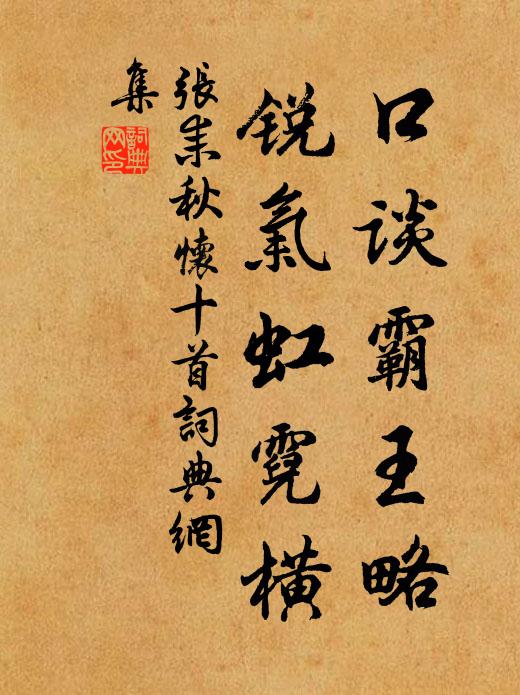 口談霸王略
銳氣虹霓橫
張耒秋懷十首詞典網
集
詞典
网印